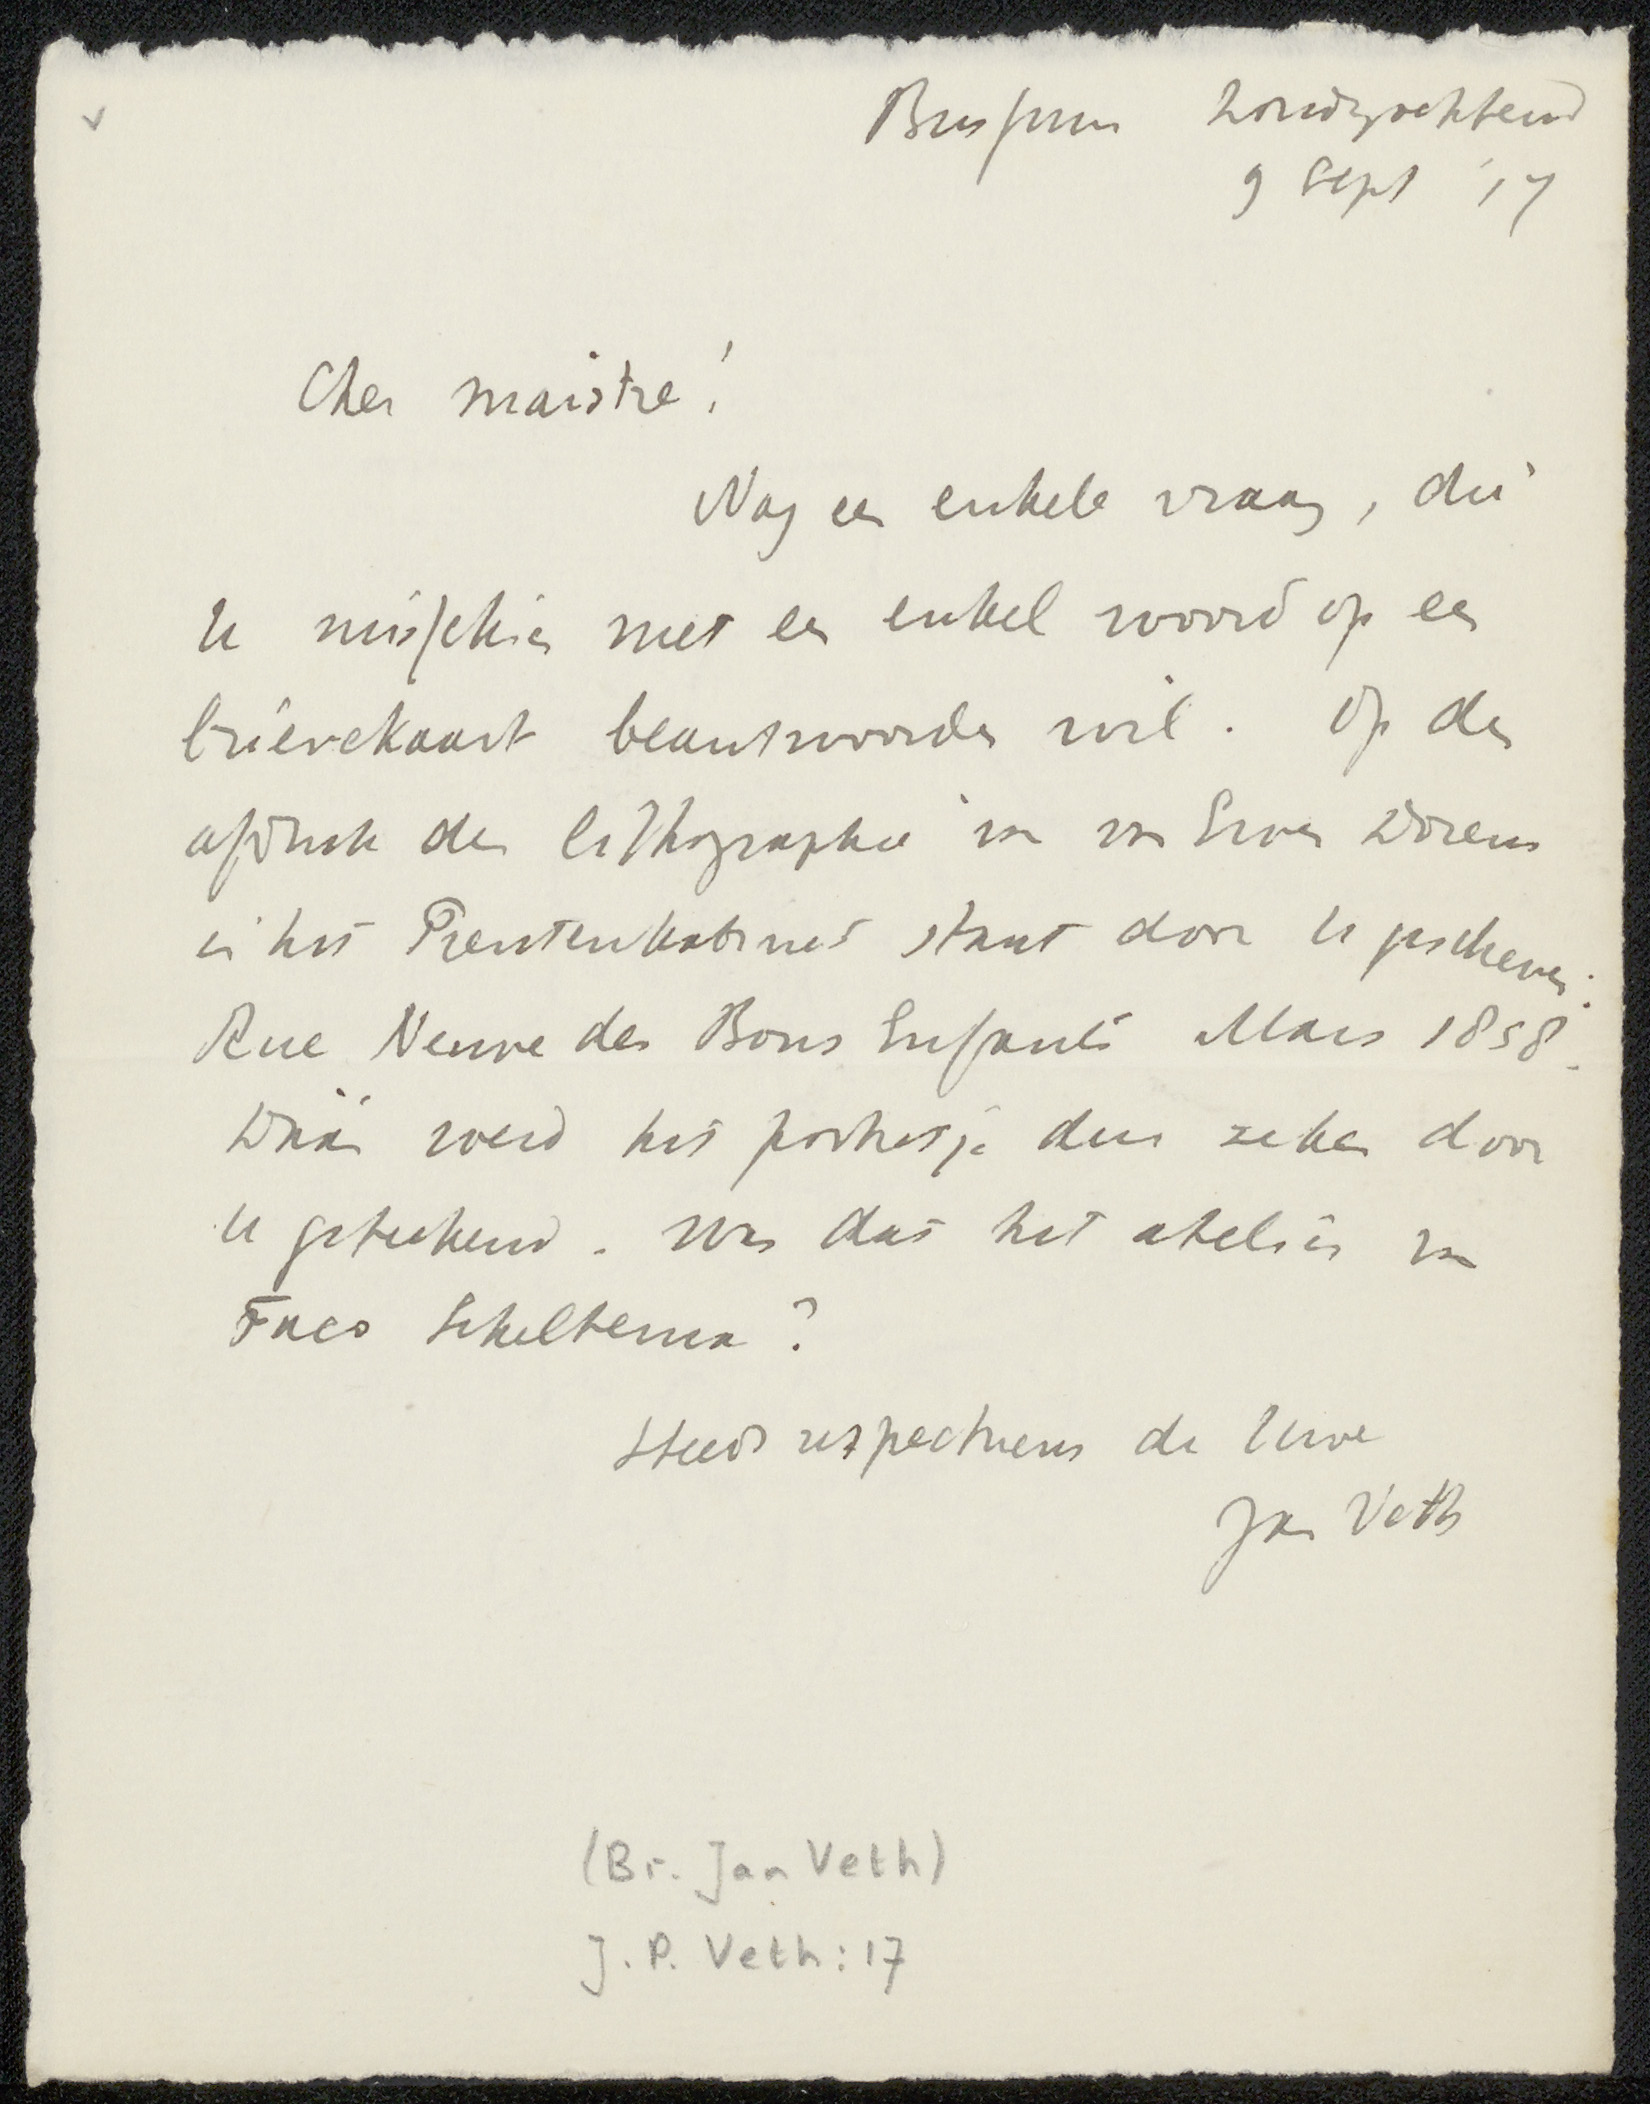 Bussum Zondagochtend
9 Sept '17
Cher maistre!
Nog een enkele vraag, die
U misschien met een enkel woord op een
brievekaart beantwoorden wil. Op den
afdruk der lithographie van van Soren Dorens
in het Prentenkabinet staat door U geschreven:
Rue Neuve des Bons Enfants Mars 1858.
Dáár werd het portretje dus zeker door
U geteekend. Was dat het atelier van
Taco Scheltema?
Steeds respectueus de Uwe
Jan Veth
(Br. Jan Veth)
J. P. Veth: 17